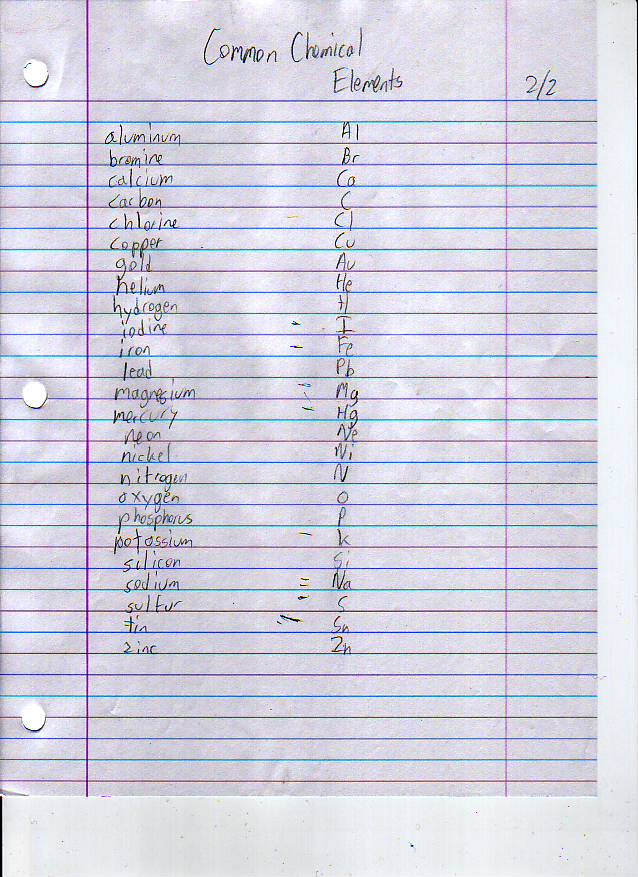 Common Chemical
Elements 2/2
aluminum Al
bromine Br
calcium Ca
carbon C
chlorine - Cl
copper Cu
gold Au
helium He
hydrogen H
iodine - I
iron - Fe
lead Pb
magnesium = Mg
mercury - Hg
neon Ne
nickel Ni
nitrogen N
oxygen O
phosphorus P
potossium - K
silicon Si
sodium = Na
sulfur - S
tin = Sn
zinc Zn